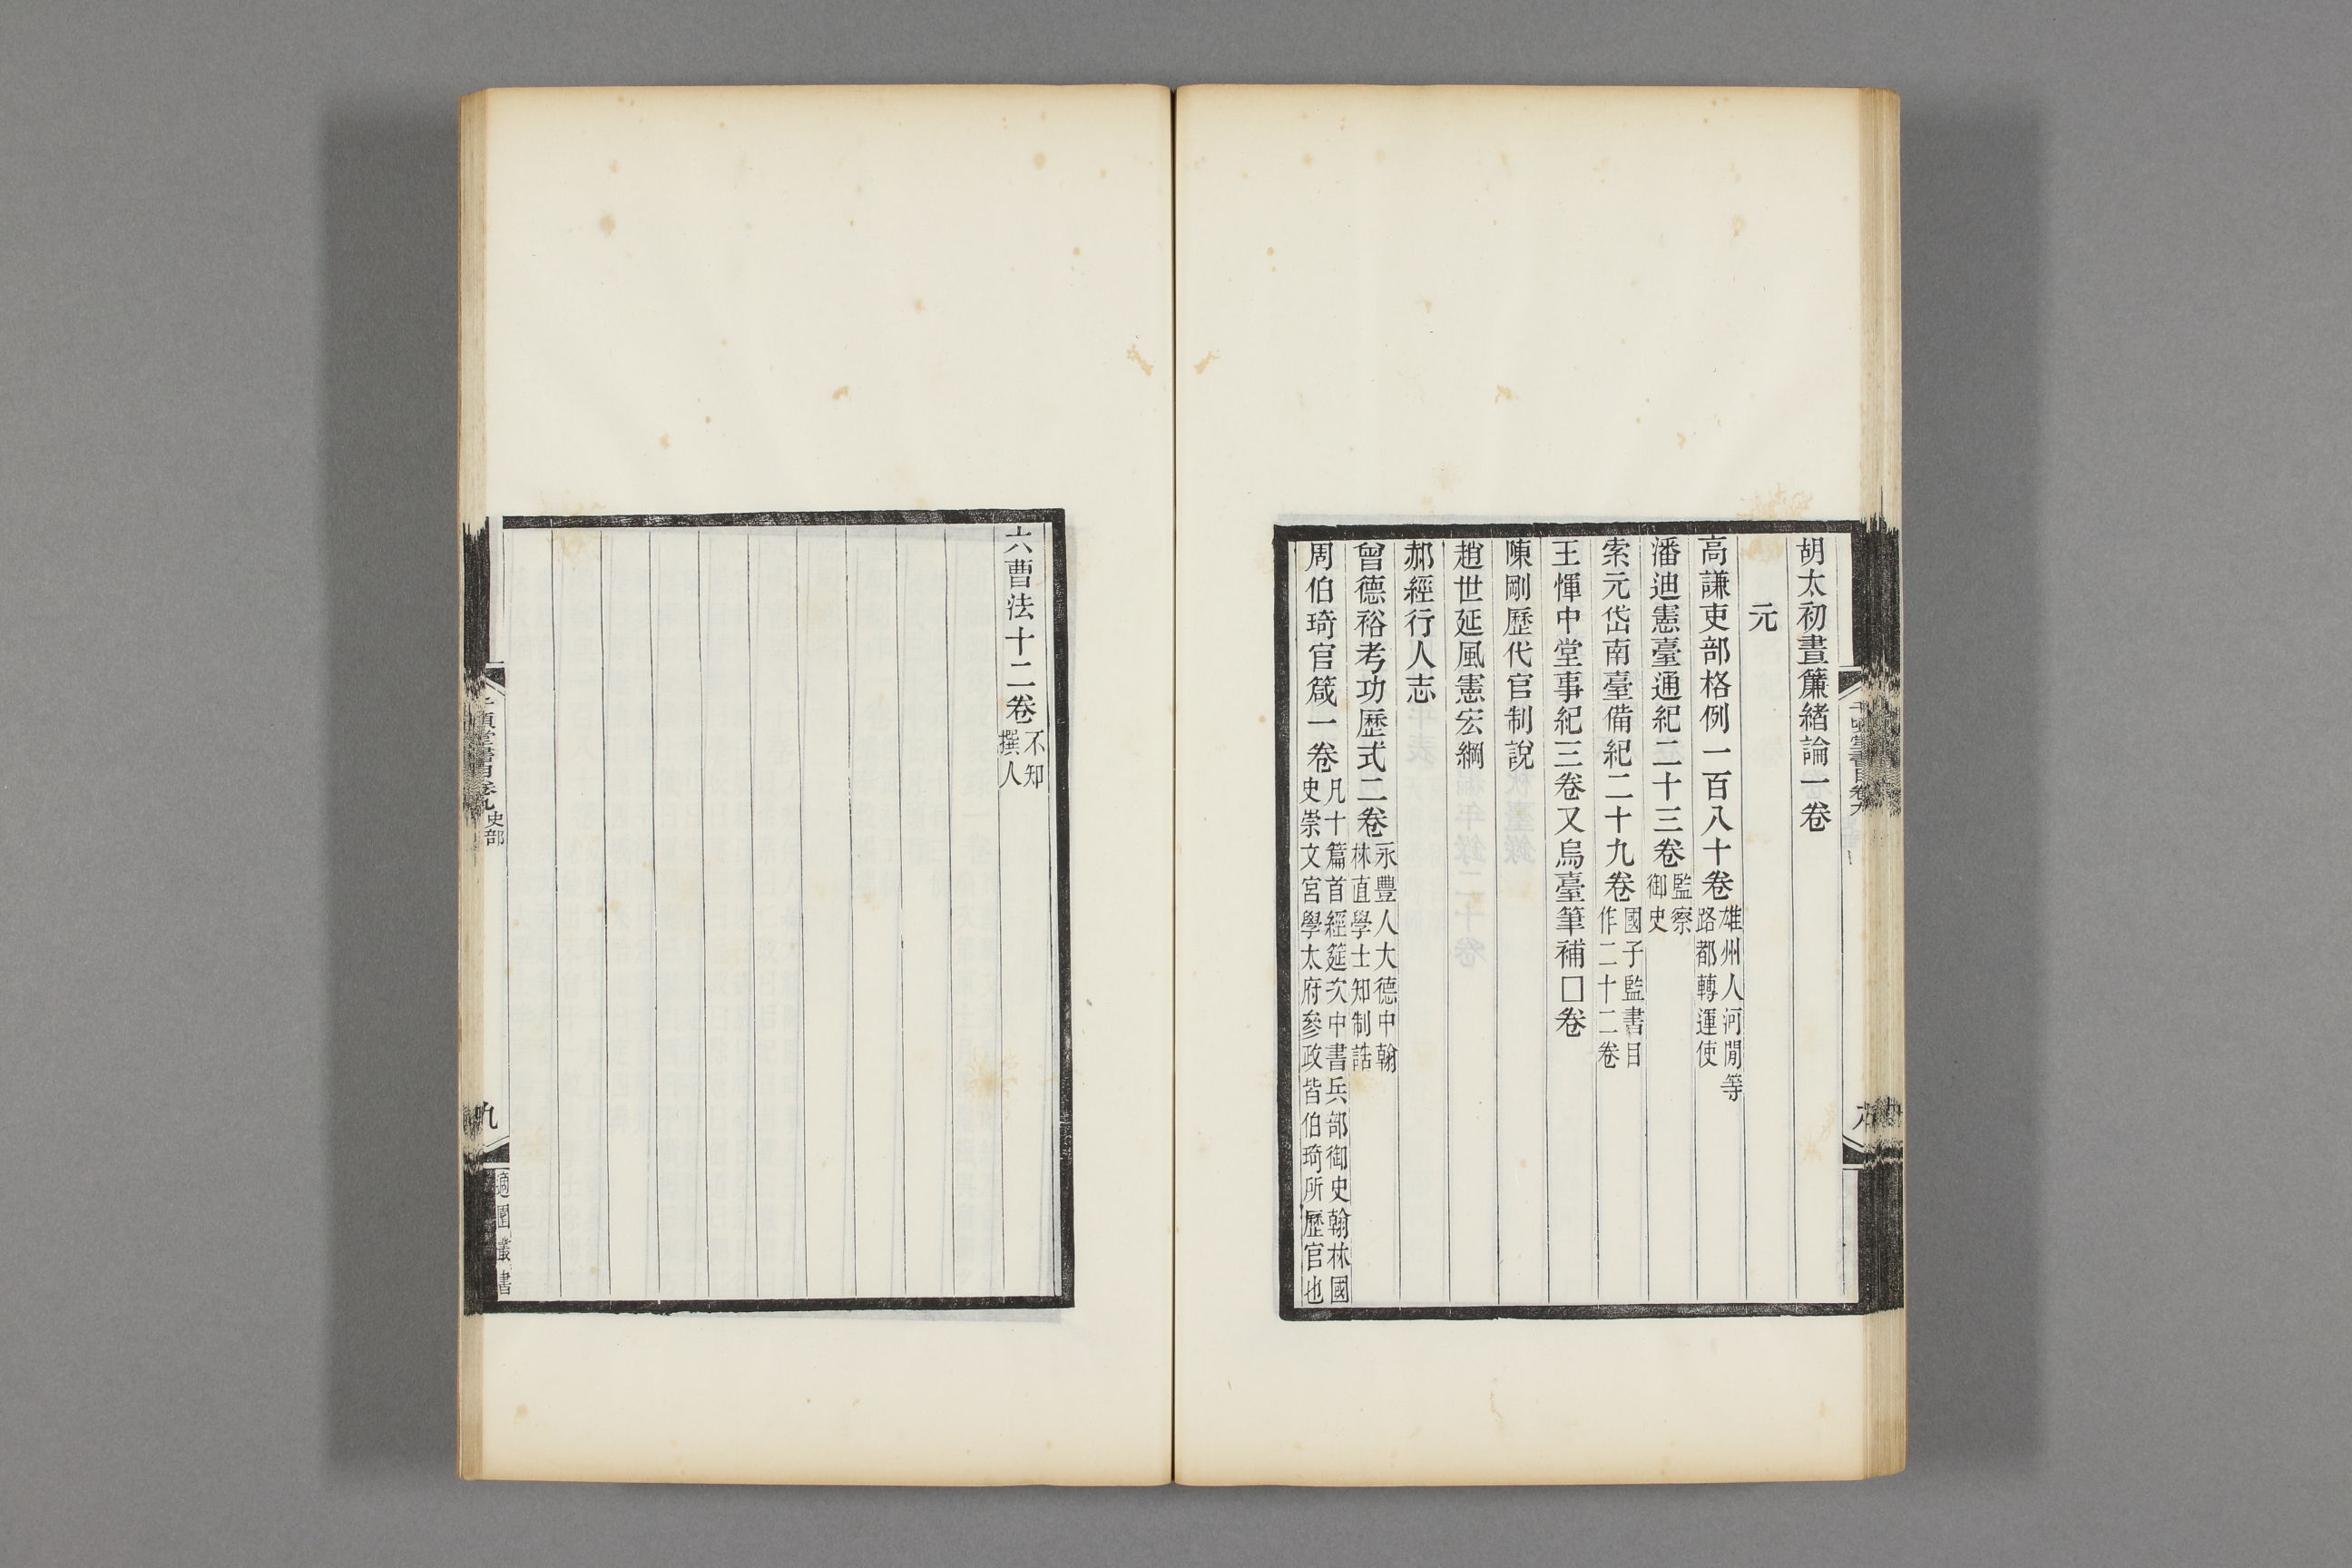 胡太初晝簾緒論一卷
元
高謙吏部格例一百八十卷雄州人河閒等路都轉運使
潘迪憲臺通紀二十三卷監察御史
索元岱南臺備紀二十九卷國子監書目作二十二卷
王惲中堂事紀三卷又烏臺筆補□卷
陳剛歷代官制說
趙世延風憲宏綱
郝經行人志
曾德裕考功歷式二卷永豐人大德中翰林直學士知制誥
周伯琦官箴一卷凡十篇首經筵次中書兵部御史翰林國史崇文宮學太府參政皆伯琦所歷官也
六曹法十二卷不知撰人
千頃堂書目卷九 史部
九
適園叢書